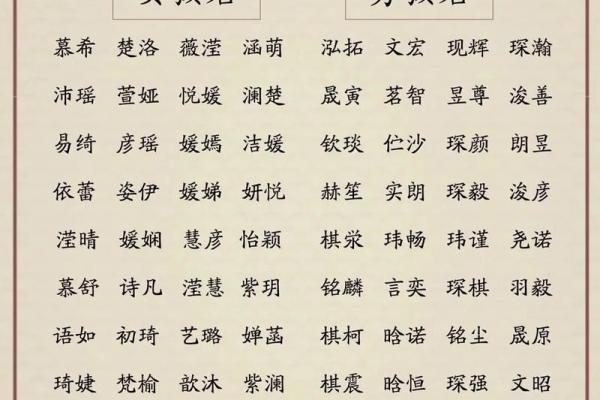 慕希 楚洛 薇滢 涵萌 泓拓 文宏 现辉 琛瀚
沛瑶 萱娅 悦媛 澜楚 晟寅 茗智 昱尊 浚善
易绮 彦瑶 媛嫣 洁媛 钦琰 伫沙 琛颜 朗昱
依蕾 姿伊 媛娣 妍悦 赫笙 实朗 琛毅 浚彦
滢晴 媛娴 慧彦 怡颖 棋泶 玮畅 玮谨 尧诺
慕舒 诗凡 滢慧 紫玥 铭麟 言奕 琛棋 羽毅
语如 初琦 艺璐 婵菡 棋柯 晗诺 铭尘 晟原
琦婕 梵榆 歆沐 紫澜 棋震 晗恒 琛强 文昭